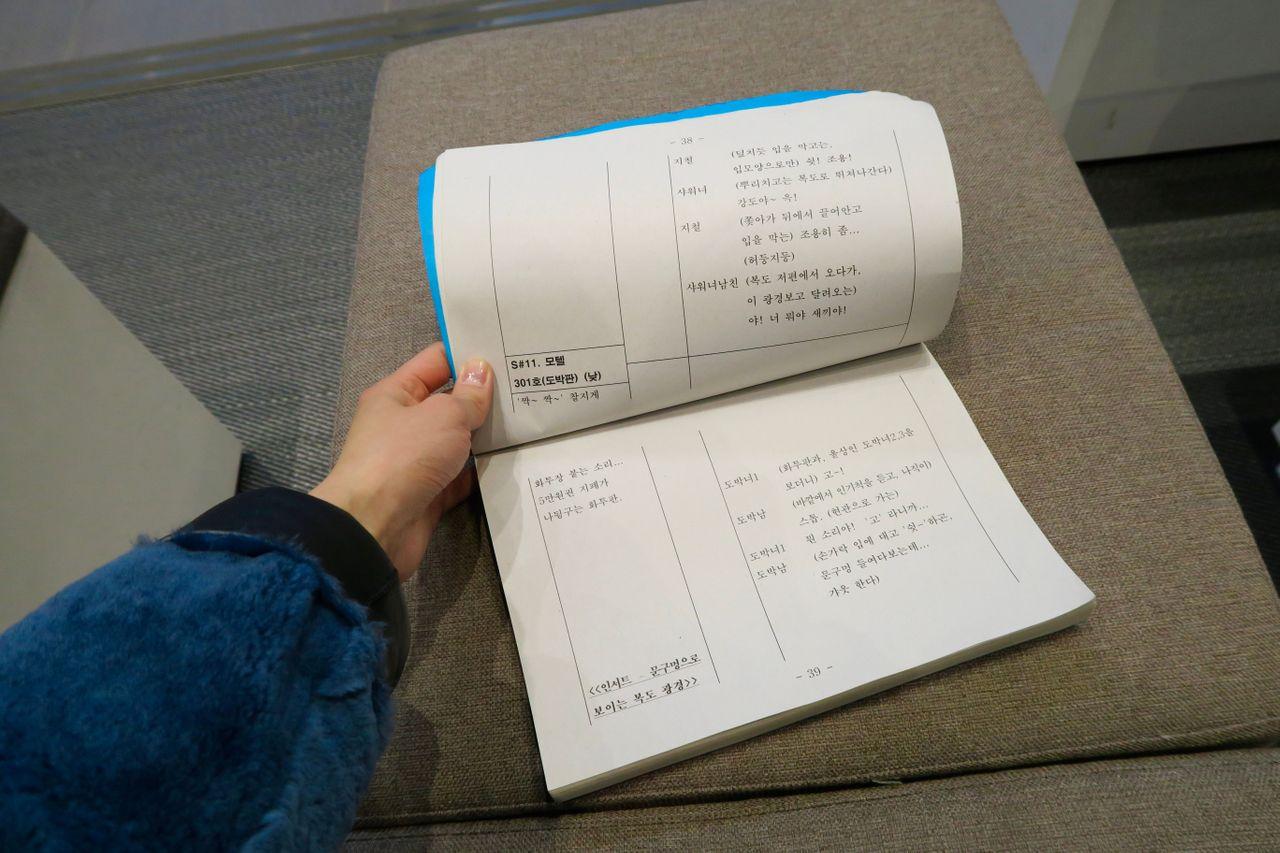 - 38 -
지철 (덮치듯 입을 막고는,
입모양으로만) 쉿! 조용!
샤워녀 (뿌리치고는 복도로 뛰쳐나간다)
강도야~ 윽!
지철 (쫓아가 뒤에서 끌어안고
입을 막는) 조용히 좀...
(허둥지둥)
샤워녀남친 (복도 저편에서 오다가,
이 광경보고 달려오는)
야! 너 뭐야 새끼야!
S#11. 모텔
301호(도박판) (낮)
'짝~ 짝~' 찰지게
화투장 붙는 소리...
5만원권 지폐가
나뒹구는 화투판.
<<인서트 - 문구멍으로
보이는 복도 광경>>
도박녀1 (화투판과, 울상인 도박녀2,3을
보더니) 고~!
도박남 (바깥에서 인기척을 듣고, 나직이)
스톱. (현관으로 가는)
도박녀1 뭔 소리야! '고' 라니까...
도박남 (손가락 입에 대고 '쉿~'하곤,
문구멍 들여다보는데...
갸웃 한다)
- 39 -